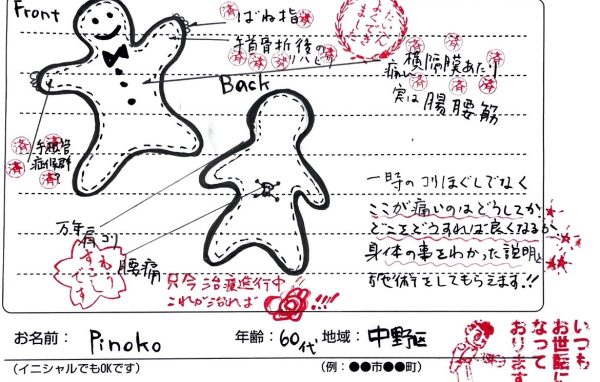 Front
済 ばね指 済
手首骨折後の
リハビリ
済 済 済 済 済
たいへん
よく
できました
済 済
横隔膜あたり
痛い
済 済 済
実は腸腰筋
Back
済 手根管
症候群
済 済 済 済
万年肩コリ
腰痛
もう
すこし
です
只今治療進行中
これが治れば!!!
一時のコリほぐしでなく
ここが痛いのはどうしてか
どこをどうすれば良くなるか
身体の事をわかった説明と
施術をしてもらえます!!
お名前: Pinoko 年齢: 60代 地域: 中野区
(イニシャルでもOKです) (例:●●市●●町)
いつも
お世話に
なって
おります